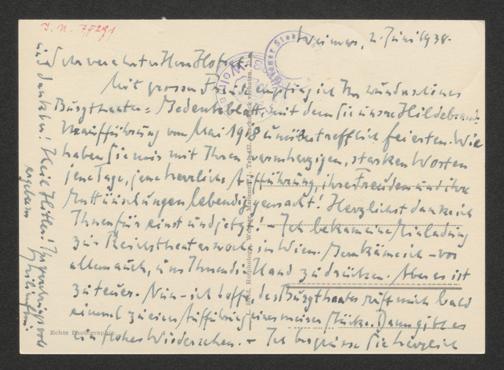 J. N. 75291
Weimar, 2. Juni 1938.
Sehr verehrter Herr Hofrat!
Mit grosser Freude empfing ich Ihr wundervolles
Burgtheater-Gedenkblatt, mit dem Sie unsre Hildebrand
Uraufführung vom Mai 1918 unübertrefflich feierten. Wie
haben Sie mir mit Ihren warmherzigen, starken Worten
jene Tage, jene herrliche Aufführung, ihre Freuden und ihre
Enttäuschungen lebendig gemacht! Herzlichst danke ich
Ihnen für einst und jetzt! – Ich bekam eine Einladung
zur Reichstheaterwoche in Wien. Gern käme ich – vor
allem auch, um Ihnen die Hand zu drücken. Aber es ist
zu teuer. Nun – ich hoffe, das Burgtheater ruft mich bald
einmal zu einer Aufführung eines meiner Stücke. Dann gibt es
ein frohes Wiedersehen. – Ich begrüsse Sie herzlich
und dankbar! Heil Hitler! Ihr
ergebener
Echte Photographie